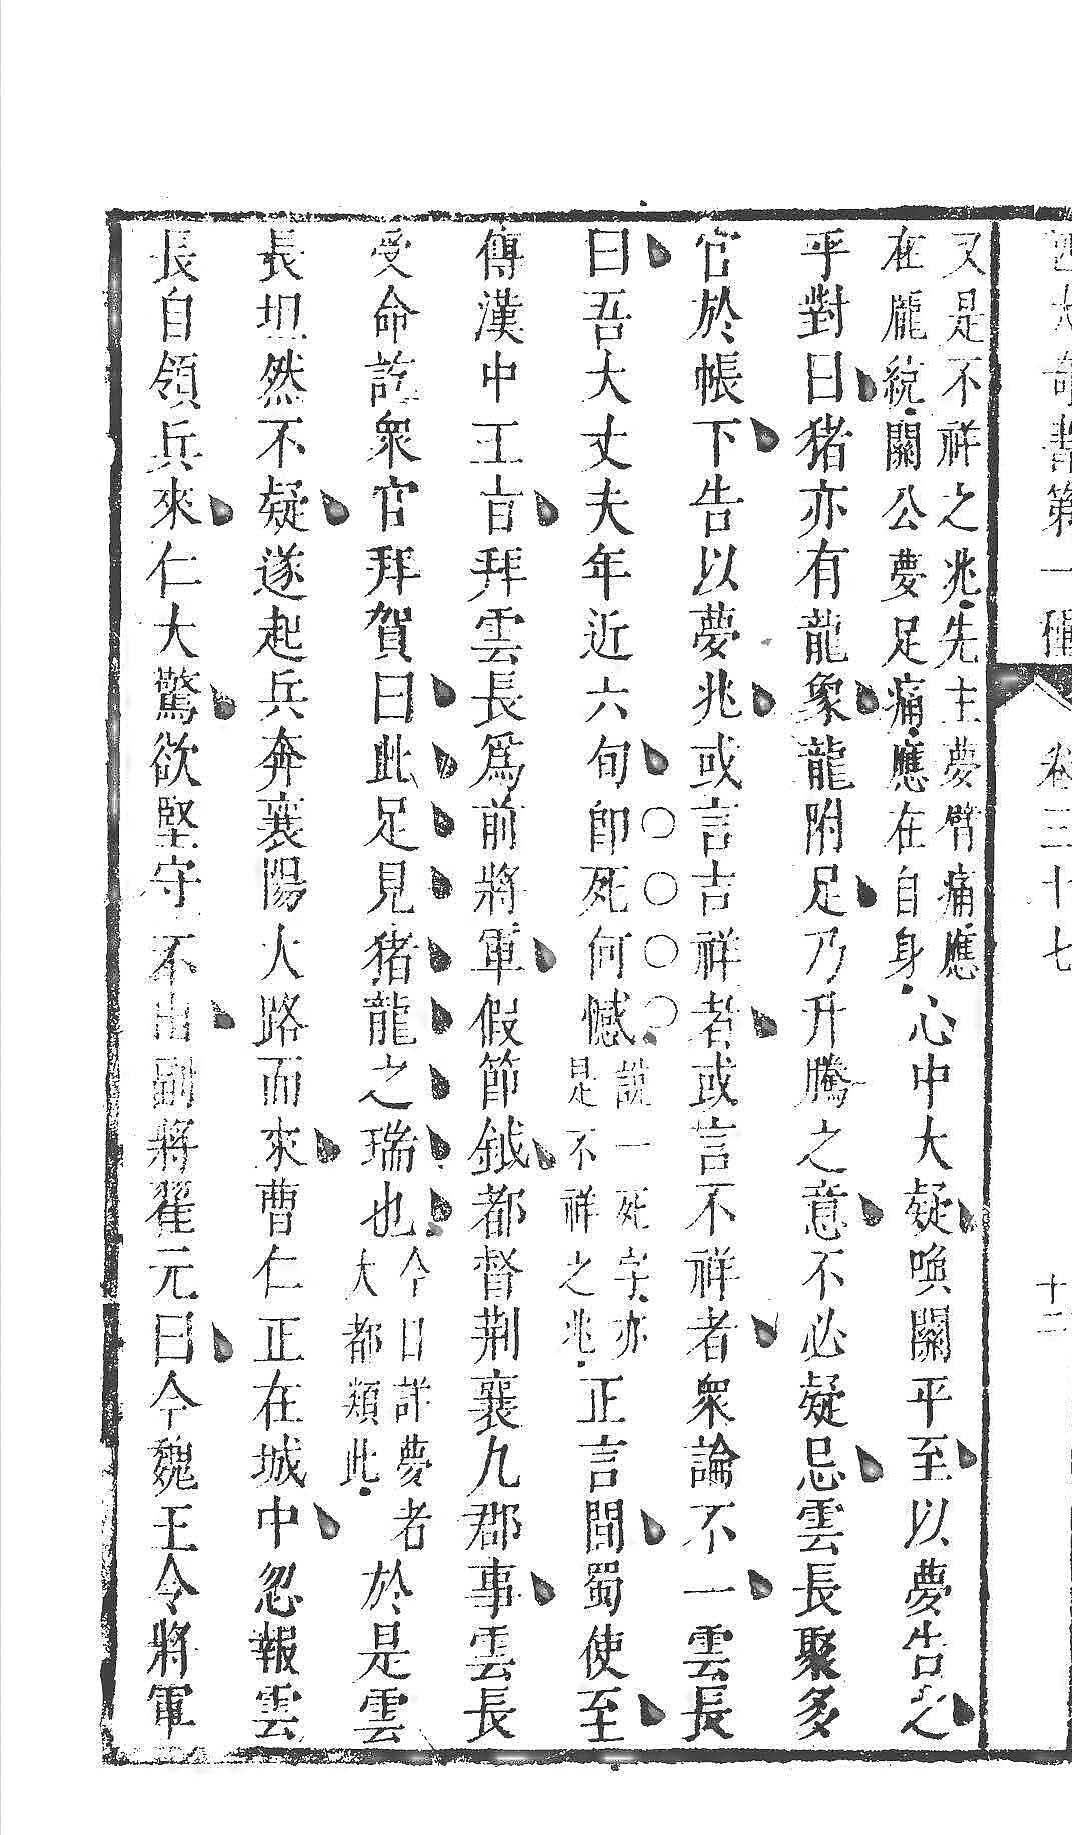 四大奇書第一種 卷三十七 十二
又是不祥之兆先主夢臂痛應
在龐統關公夢足痛應在自身
心中大疑喚關平至以夢告之
乎對曰猪亦有龍象龍附足乃升騰之意不必疑忌雲長聚多
官於帳下告以夢兆或言吉祥者或言不祥者衆論不一雲長
曰吾大丈夫年近六旬即死何憾
說一死字亦
是不祥之兆
正言間蜀使至
傳漢中王旨拜雲長爲前將軍假節鉞都督荆襄九郡事雲長
受命訖衆官拜賀曰此足見猪龍之瑞也
今日詳夢者
大都類此
於是雲
長坦然不疑遂起兵奔襄陽大路而來曹仁正在城中忽報雲
長自領兵來仁大驚欲堅守不出副將翟元曰今魏王令將軍